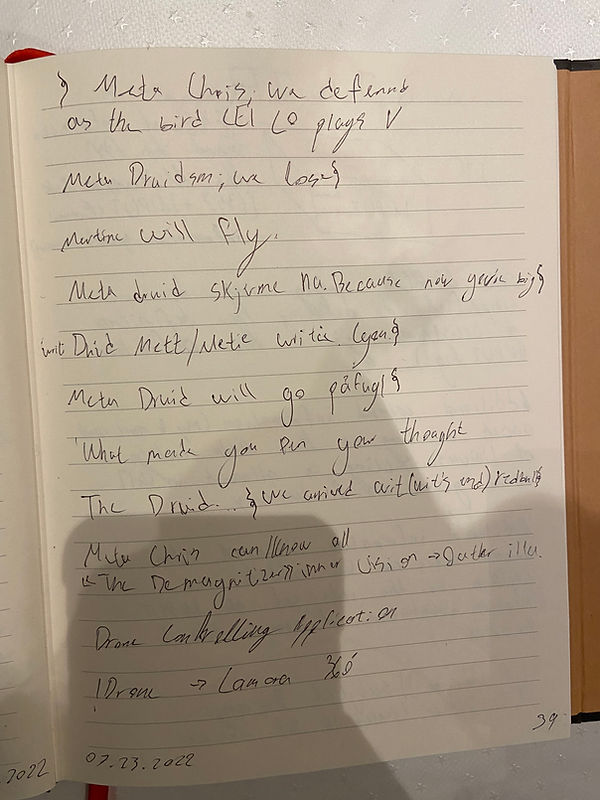 } Meta Chris, we defennd
as the bird LEI LO plays V
Meta Druidsm; we Lose}
will fly.
Meta druid skjerme nu. Because now you're big}
Druid Mett/Metie write. again}
Meta Druid will go påfugl}
'What made you pen your thought
The Druid...} we arrived (wit's end) redbull}
Meta Chris can/know all
"The Demagnitizer" inner vision → Outer illu.
Drone Controlling Application
!Drone → Camera 360°
39
2022
07.23.2022